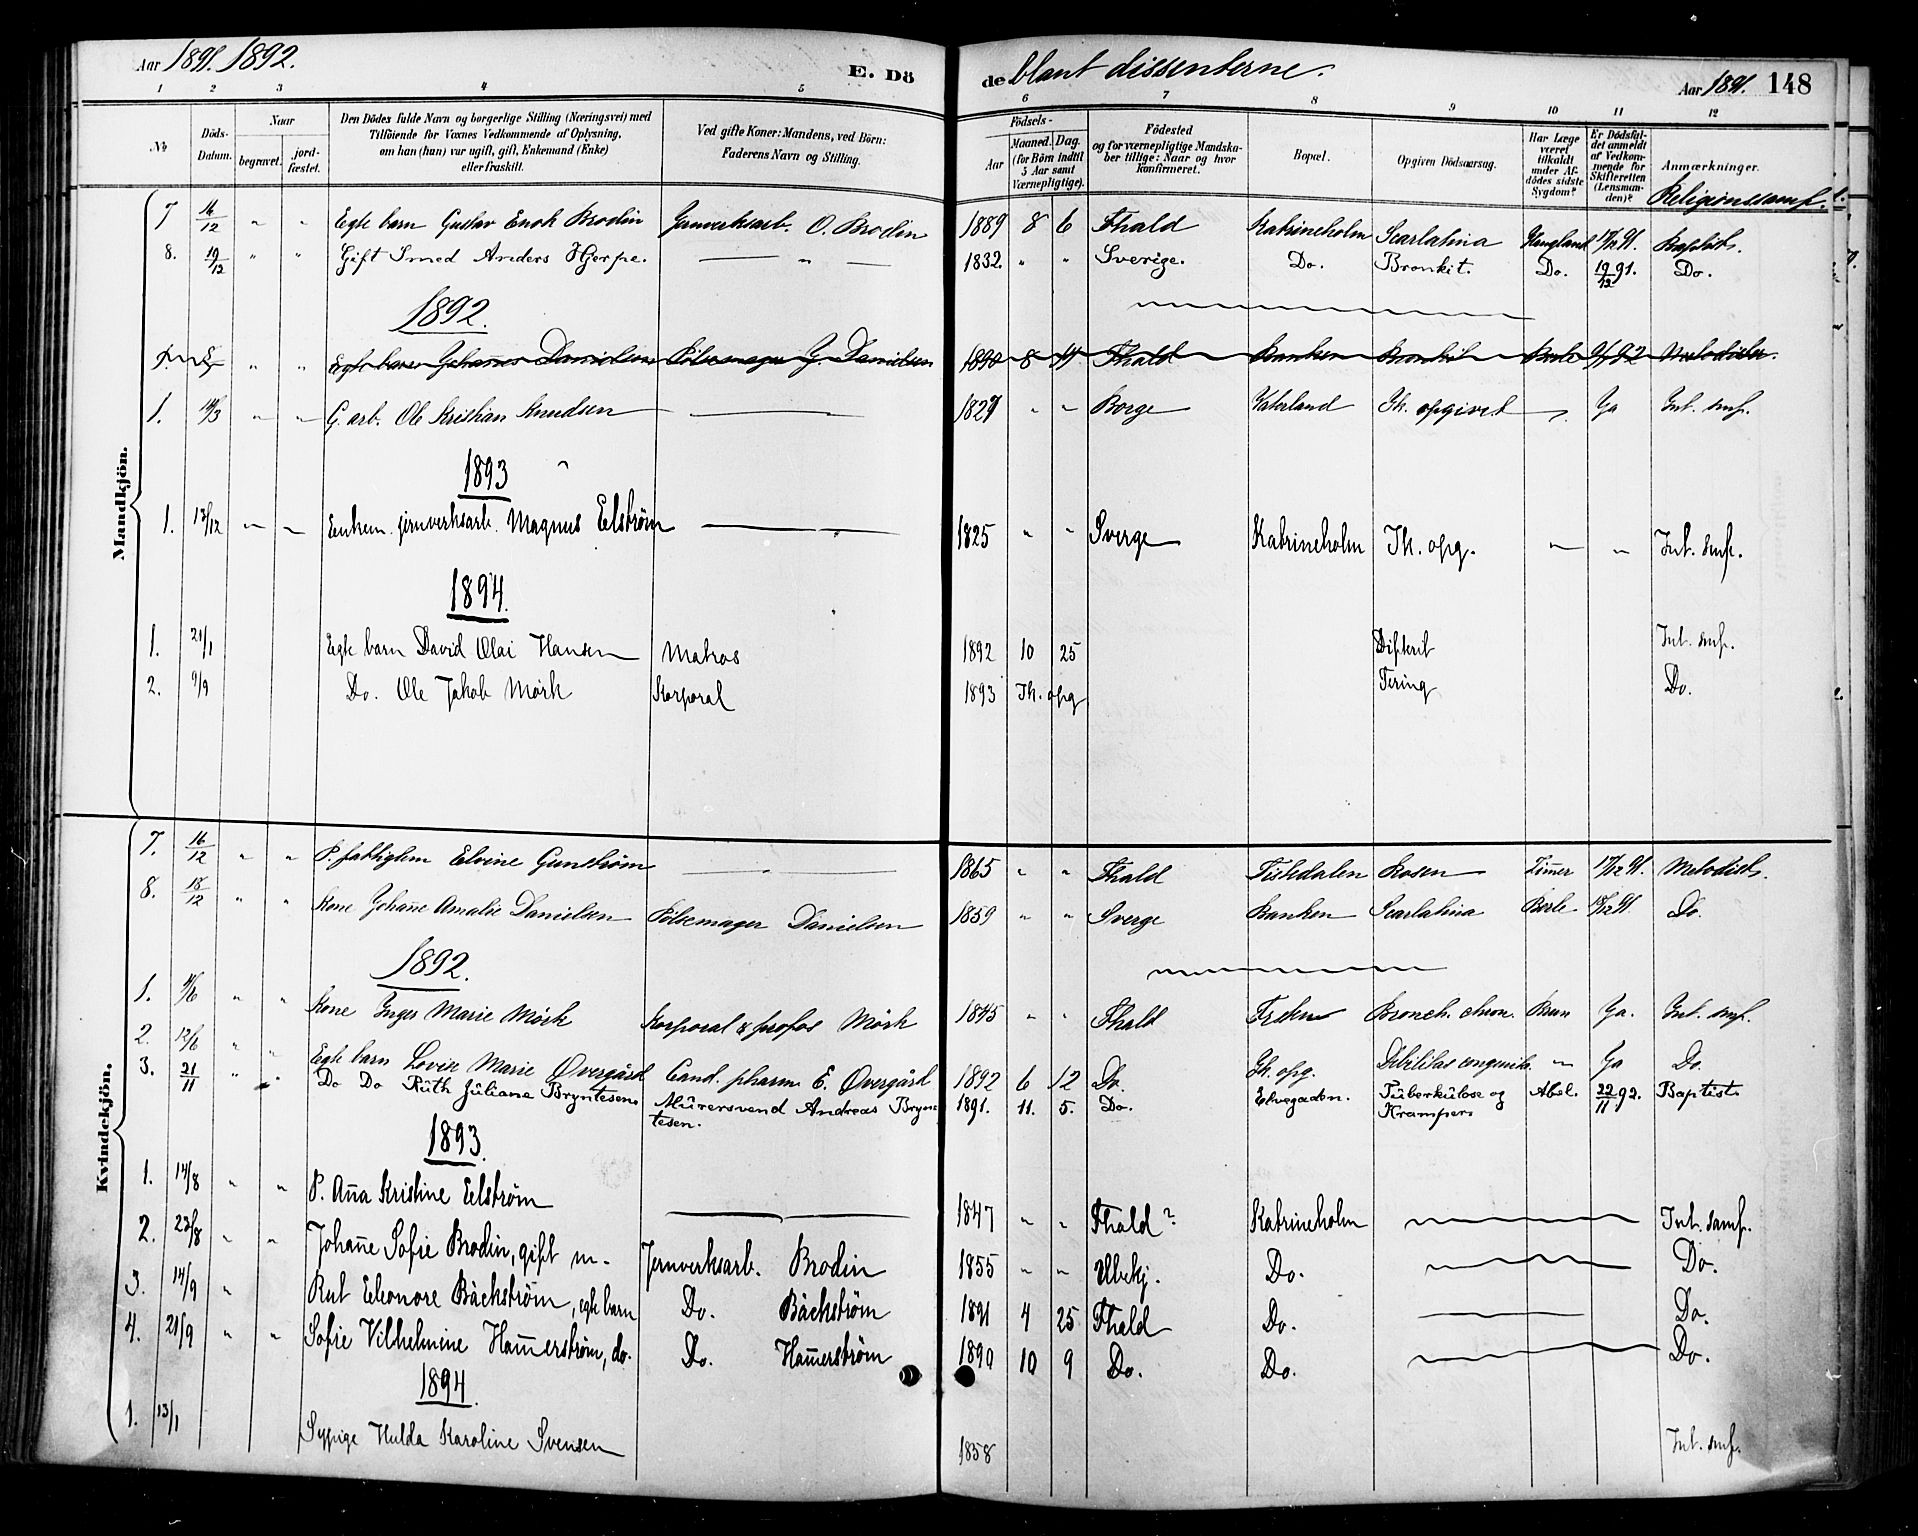 Aar 1891. 1892. E. Dö de blant dissenterne. Aar 1891. 148
1 2 3 4 5 6 7 8 9 10 11 12
No Döds-Datum. Naar begravet. jordfæstet. Den Dödes fulde Navn og borgerlige Stilling (Næringsvei) med Tilföiende for Voxnes Vedkommende af Oplysning, om han (hun) var ugift, gift, Enkemand (Enke) eller fraskilt. Ved gifte Koner: Mandens, ved Börn: Faderens Navn og Stilling. Födsels- Aar Maaned. Dag. (for Börn indtil 5 Aar samt Værnepligtige). Födested og for værnepligtige Mandskaber tillige: Naar og hvor konfirmeret. Bopæl. Opgiven Dödsaarsag. Har Læge været tilkaldt under Afdödes sidste Sygdom? Er Dödsfaldet anmeldt af Vedkommende for Skifteretten (Lensmanden)? Anmærkninger.
Religionssamf.
Mandkjön.
7 16/12 " " Egte barn Gustav Enok Brodin Jernverksarb. O. Brodin 1889 8 6 Fhald Katrineholm Scarlatina 17/12 91. Baptist.
8. 19/12 " " Gift Smed Anders Hjerpe. — " — 1832. " " Sverige. Do. Bronkit. Do. 19/12 91. Do.
1892.
Egte barn Johannes Danielsen Pölsemager J. Danielsen 1890 8 Fhald Banken Bronkit Berle Metodister.
1. 14/3 " " G. arb. Ole Kristian Knudsen — 1827 " " Borge Vaterland Ik. opgivet — Ja Int. smf.
1893
1. 13/12 — — Enkem. jernverksarb. Magnus Eelström — 1825 " " Sverge Katrineholm Ik. opg. — " Int. smf.
1894.
1. 21/1 Egte barn David Olai Hansen Matros 1892 10 25 Difterit Int. smf.
2. 9/9 Do. Ole Jakob Mörk Korporal 1893 Ik. opg Tering Do.
Kvindekjön.
7. 16/12 " " P. fattiglem Elvine Gunström — 1865 " " Fhald Fiskdalen Rosen Zimmer 17/12 91. Metodist.
8. 18/12 " " Kone Johanne Amalie Danielsen Pölsemager Danielsen 1859 " " Sverge Banken Scarlatina Berle 18/12 91. Do.
1892.
1. 4/6 " " Kone Inger Marie Mörk Korporal & profos Mörk 1845 " " Fhald Bronch. chron. Brun Ja. Int. smf.
2. 12/6 " " Egte barn Marie Overgård Cand. pharm. E. Overgård 1892 6 12 Do. Ik. opg. Debilitas congenita — Ja Do.
3. 21/11 " " Do Do Ruth Juliane Bryntesen Murersvend Andreas Bryntesen. 1891. 11. 5. Do. Elvegaden. Tuberkulose og Kramper Abel. 22/11 92. Baptist
1893.
1. 14/8 " " P. Anna Kristine Eelström — 1847 " " Fhald? Katrineholm — Int. samf.
2. 23/8 " " Johanne Sofie Brodin, gift m. Jernverksarb. Brodin 1855 " " Ulbekj. Do. — Do.
3. 14/9 " Rut Eleonore Bäckström, egte barn Do. Bäckström 1891 4 25 Fhald Do. — Do.
4. 21/9 " " Sofie Vilhelmine Hammerström, do. Do. Hammerström 1890 10 9 Do. Do. — Do.
1894
1. 13/1 Sypige Hulda Karoline Svensen 1858 Int. smf.